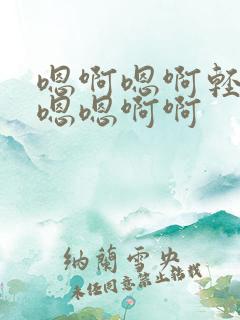 嗯啊嗯啊轻
嗯嗯啊啊
纳兰雪央
未经同意禁止转载